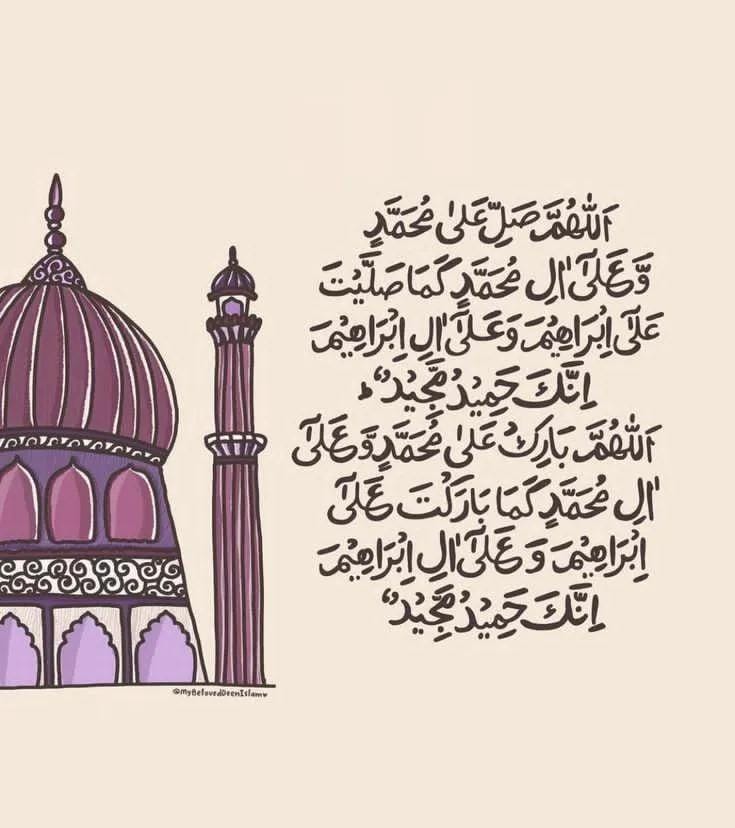 اَللّٰهُمَّ صَلِّ عَلٰى مُحَمَّدٍ
وَّعَلٰٓى اٰلِ مُحَمَّدٍ كَمَا صَلَّيْتَ
عَلٰٓى اِبْرَاهِيْمَ وَعَلٰٓى اٰلِ اِبْرَاهِيْمَ
اِنَّكَ حَمِيْدٌ مَّجِيْدٌ ؕ
اَللّٰهُمَّ بَارِكْ عَلٰى مُحَمَّدٍ وَّعَلٰٓى
اٰلِ مُحَمَّدٍ كَمَا بَارَكْتَ عَلٰٓى
اِبْرَاهِيْمَ وَعَلٰٓى اٰلِ اِبْرَاهِيْمَ
اِنَّكَ حَمِيْدٌ مَّجِيْدٌ
@MyBelovedDeenIslam♥